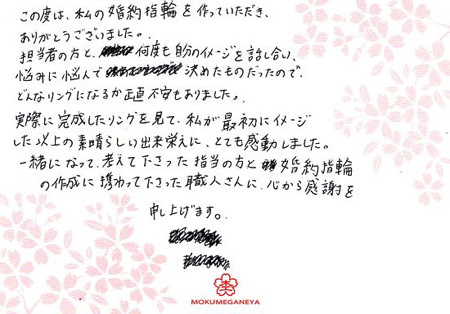 この度は、私の婚約指輪を作っていただき、
ありがとうございました。
担当者の方と、何度も自分のイメージを話し合い、
悩みに悩んで決めたものだったので、
どんなリングになるか正直不安もありました。
実際に完成したリングを見て、私が最初にイメージ
した以上の素晴らしい出来栄えに、とても感動しました。
一緒になって、考えて下さった担当の方と婚約指輪
の作成に携わって下さった職人さんに、心から感謝を
申し上げます。
MOKUMEGANEYA